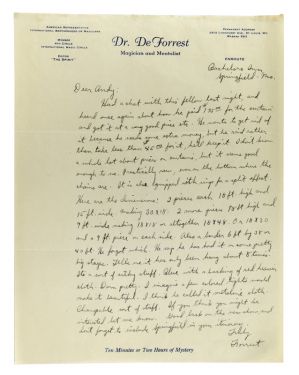 AMERICAN REPRESENTATIVE
INTERNATIONAL BROTHERHOOD OF MAGICIANS
MEMBER
MAGIC CIRCLE
INTERNATIONAL MAGIC CIRCLE
EDITOR
"THE SPIRIT"
Dr. De Forrest
Magician and Mentalist
PERMANENT ADDRESS
ENROUTE
Bachelors Inn
Springfield - Mo.
Dear Andy:
Had a chat with this fellow last night, and
heard once again about how he paid for the curtain
and got it at a very good price etc. He wants to get rid of
it because he needs some extra money, but he said rather
than take less than for it, he'll keep it. I don't know
a whole lot about price on curtains, but it looks good
enough to me. Practically new, even on the bottom where the
chains are. It is also equipped with rings for a split effect.
Here are the dimensions: 2 pieces each 18 ft. high and
15 ft. wide making 30 x 18. 2 more pieces 18 ft high and
9 ft. wide making 18 x 18 or altogether 18 x 48. Or 18 x 30
and a 9 ft. piece on each side. Also a border 6 ft by 38 or
40 ft. He forgot which. He says he has had it in some pretty
big stages. Tells me it has only been hung about 8 times.
It's a sort of silky stuff. Also with a backing of red heaven
cloth. Darn pretty. I imagine a few colored lights would
make it beautiful. I think he called it metaling cloth.
Changeable sort of stuff. If you think you might be
interested let me know. Good luck on the new show and
don't forget to include Springfield in your itinerary.
Forrest
Ten Minutes or Two Hours of Mystery